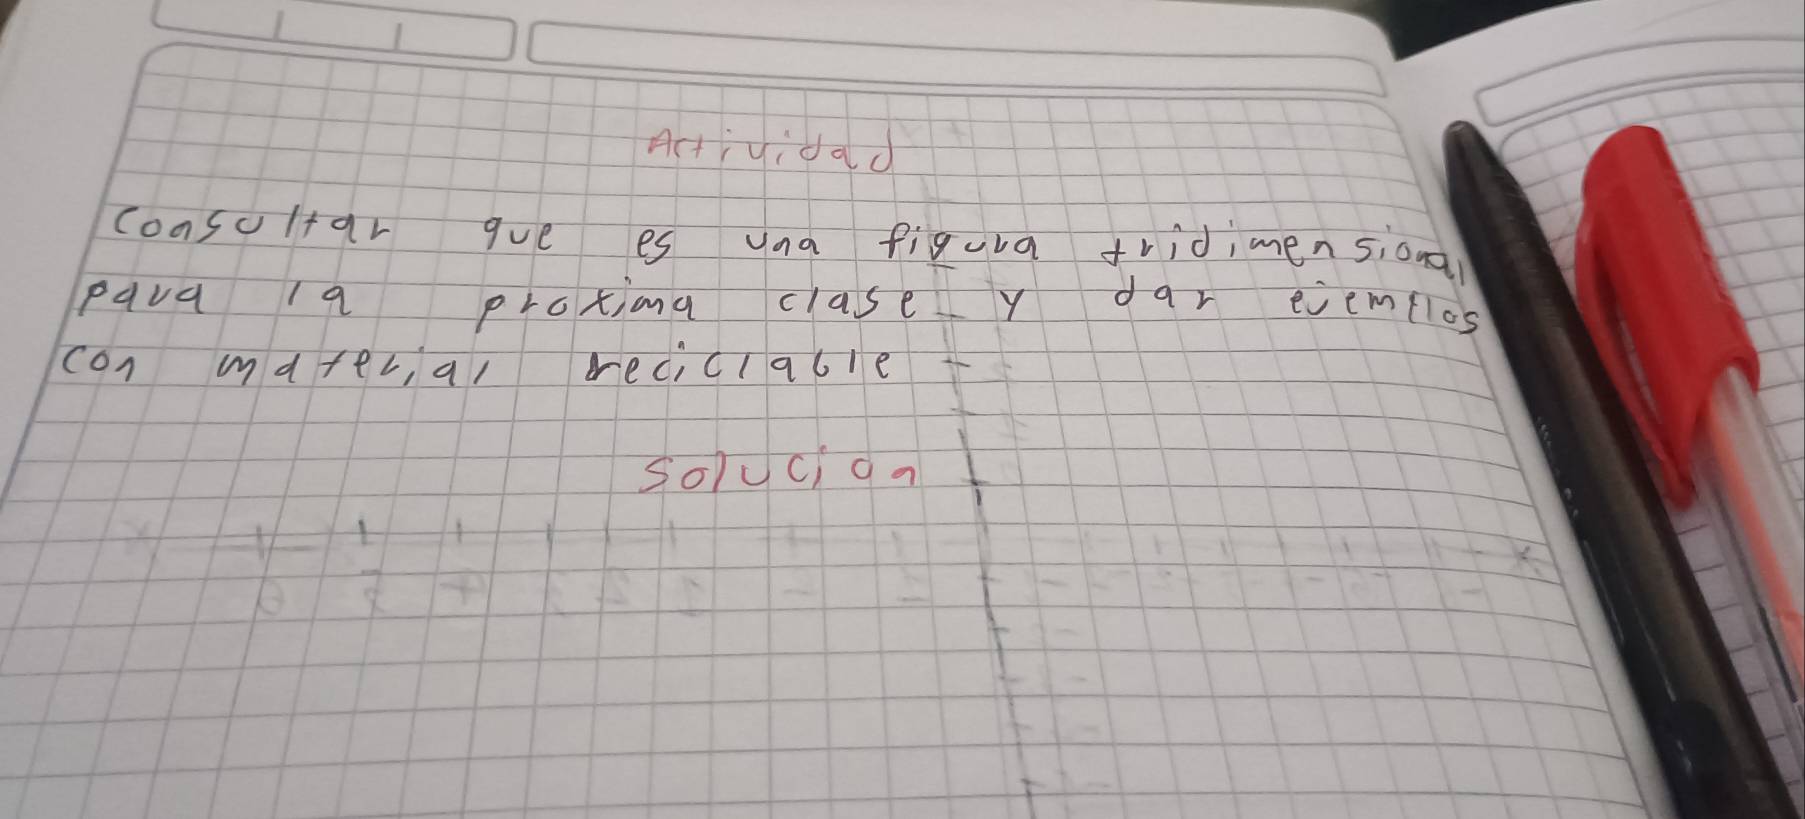 Actividad
consultar que es una figura tridimensional
para la proxima clase y dar ejemplos
con material reciclable
solucion